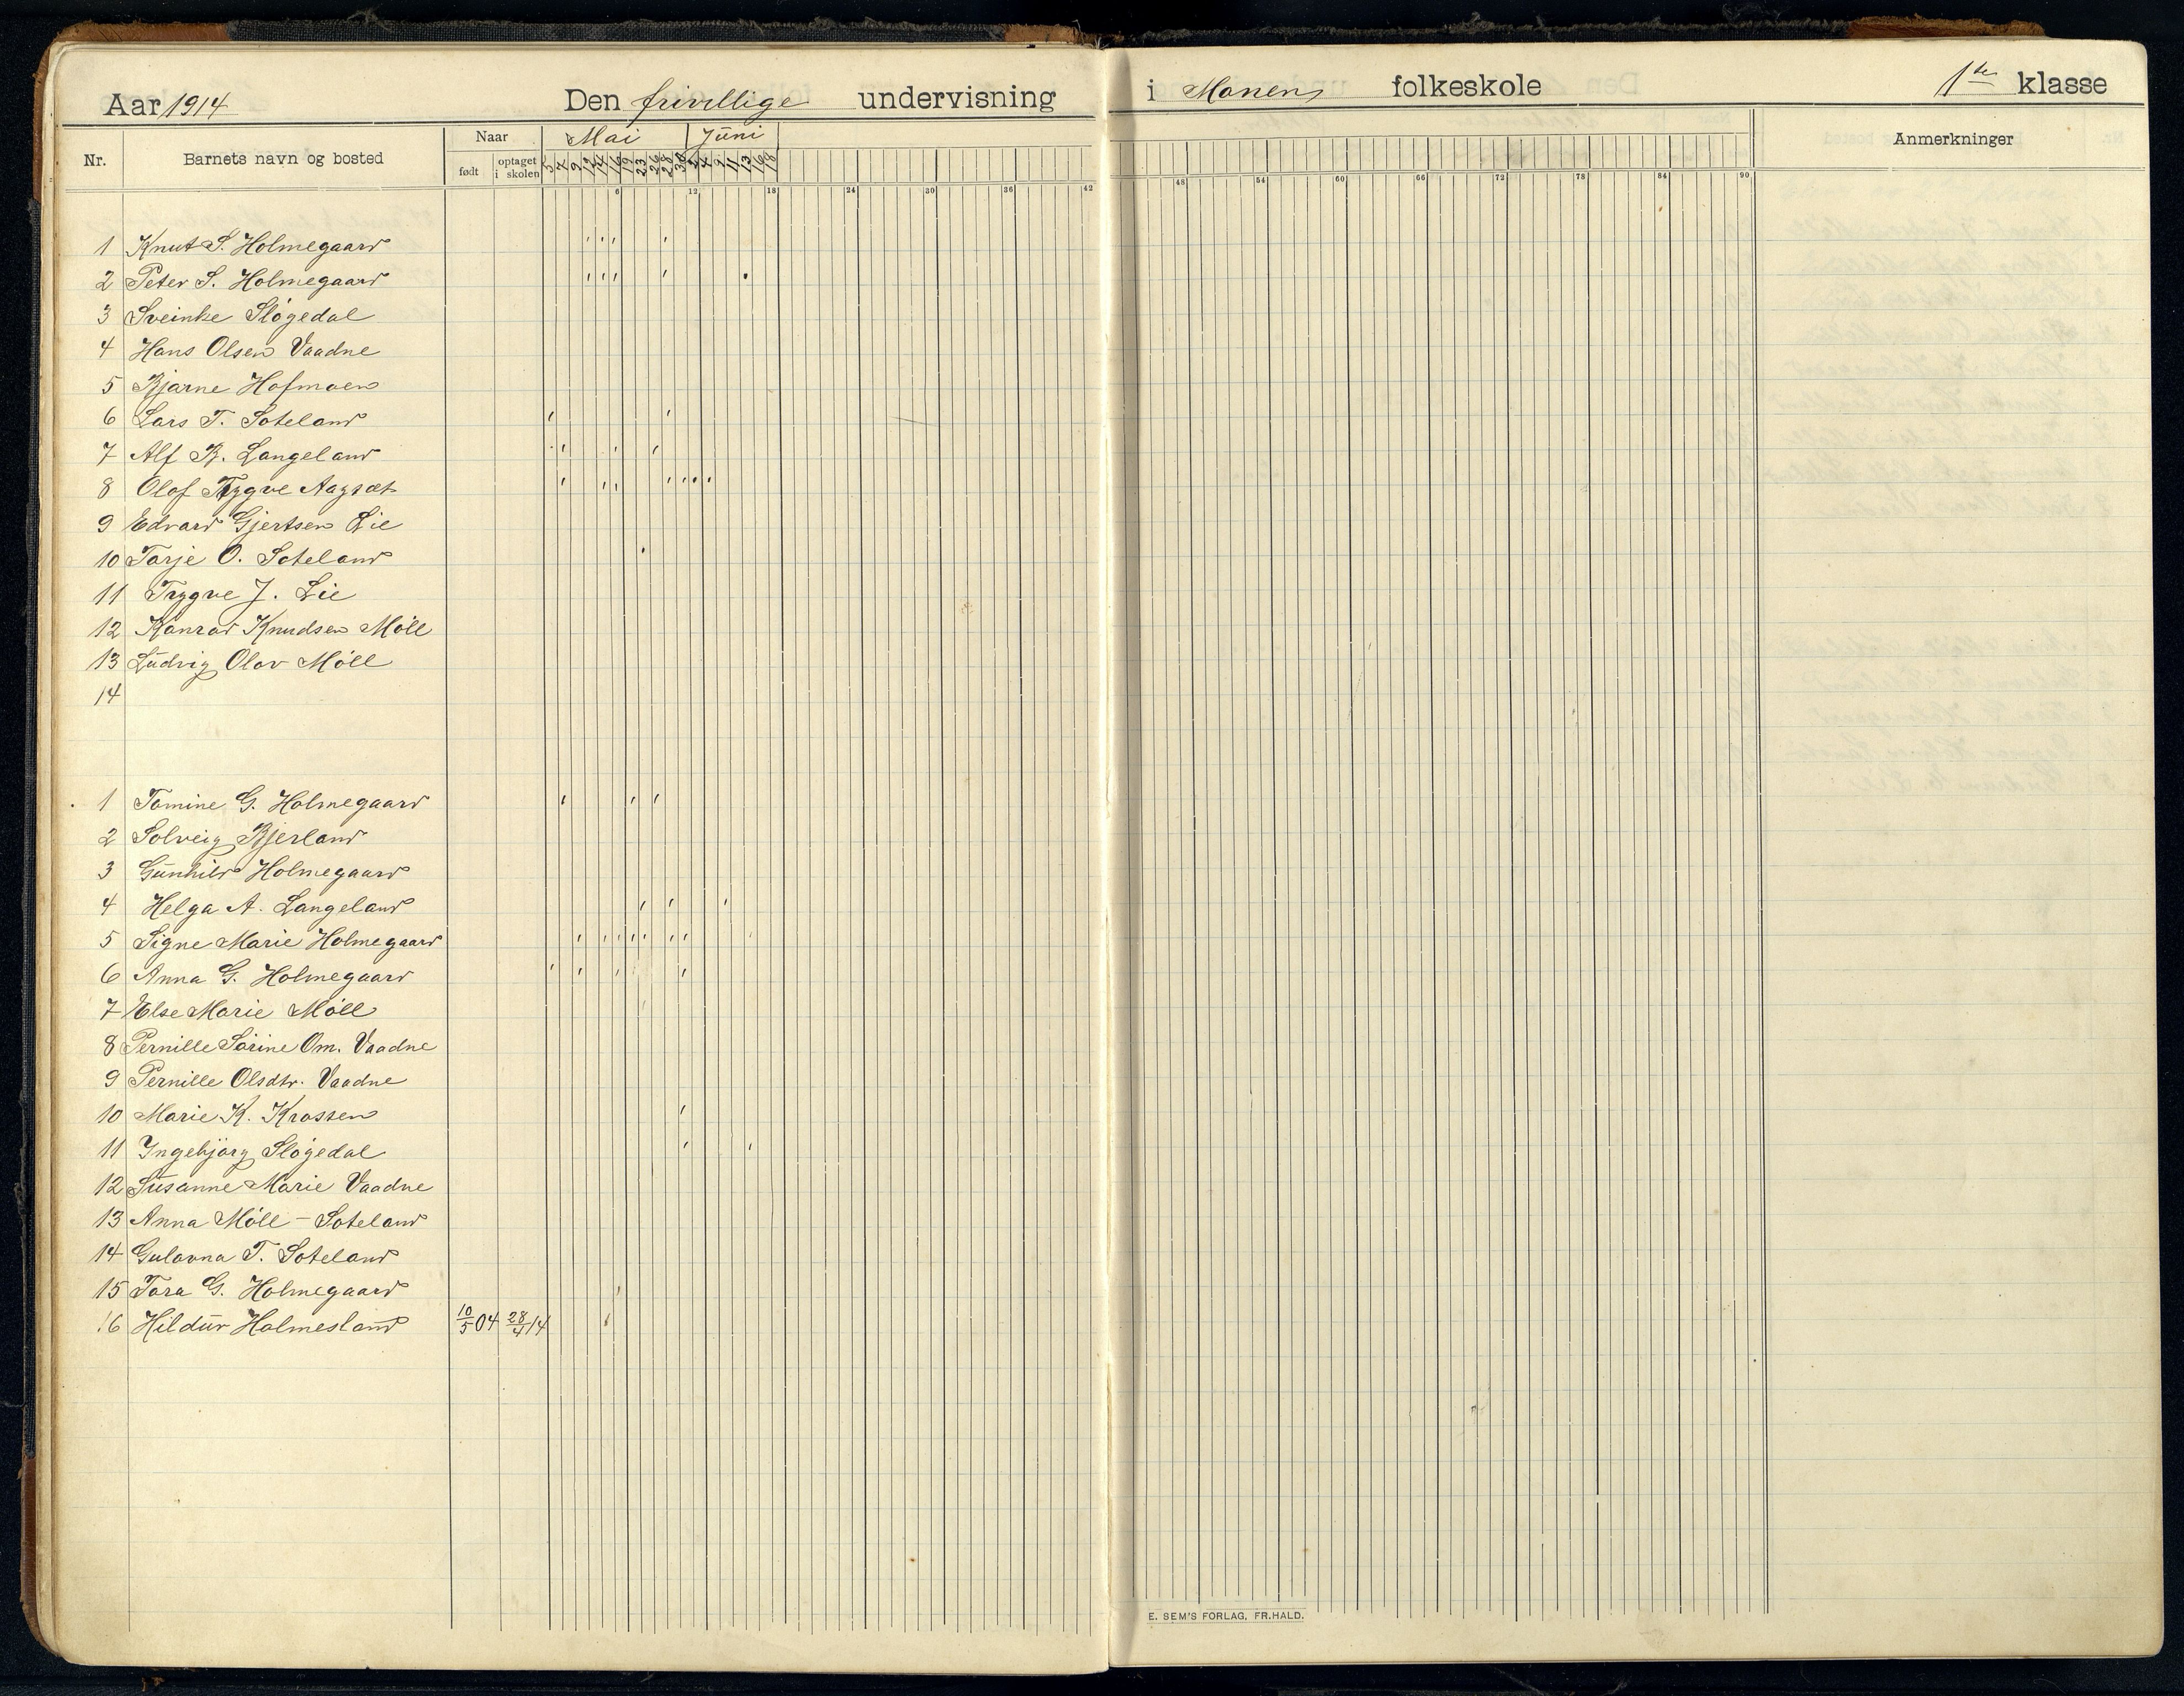 Aar 1914 Den frivillige undervisning i Monens folkeskole 1ste klasse
Nr. Barnets navn og bosted Naar Mai Juni Anmerkninger
født optaget i skolen 5 7 9 12 14 16 19 23 26 28 30 2 4 9 11 13 16 18
6 12 18 24 30 36 42 48 54 60 66 72 78 84 90
1 Knut S. Holmegaard
2 Peter S. Holmegaard
3 Sveinke Sløgedal
4 Hans Olsen Vaadne
5 Bjarne Hofmoen
6 Lars T. Soteland
7 Alf B. Langeland
8 Olaf Trygve Aagsæt
9 Edvard Gjertsen Lie
10 Tarje O. Soteland
11 Trygve J. Lie
12 Konrad Knudsen Møll
13 Ludvig Olav Møll
14
1 Tomine G. Holmegaard
2 Solveig Bjerland
3 Gunhild Holmegaard
4 Helga A. Langeland
5 Signe Marie Holmegaard
6 Anna G. Holmegaard
7 Else Marie Møll
8 Pernille Sørine Om. Vaadne
9 Pernille Olsdtr. Vaadne
10 Marie K. Krossen
11 Ingebjørg Sløgedal
12 Susanne Marie Vaadne
13 Anna Møll - Soteland
14 Gulovna T. Soteland
15 Tora G. Holmegaard
16 Hildur Holmesland 10/5 04 28/4 14
E. SEM'S FORLAG, FR.HALD.